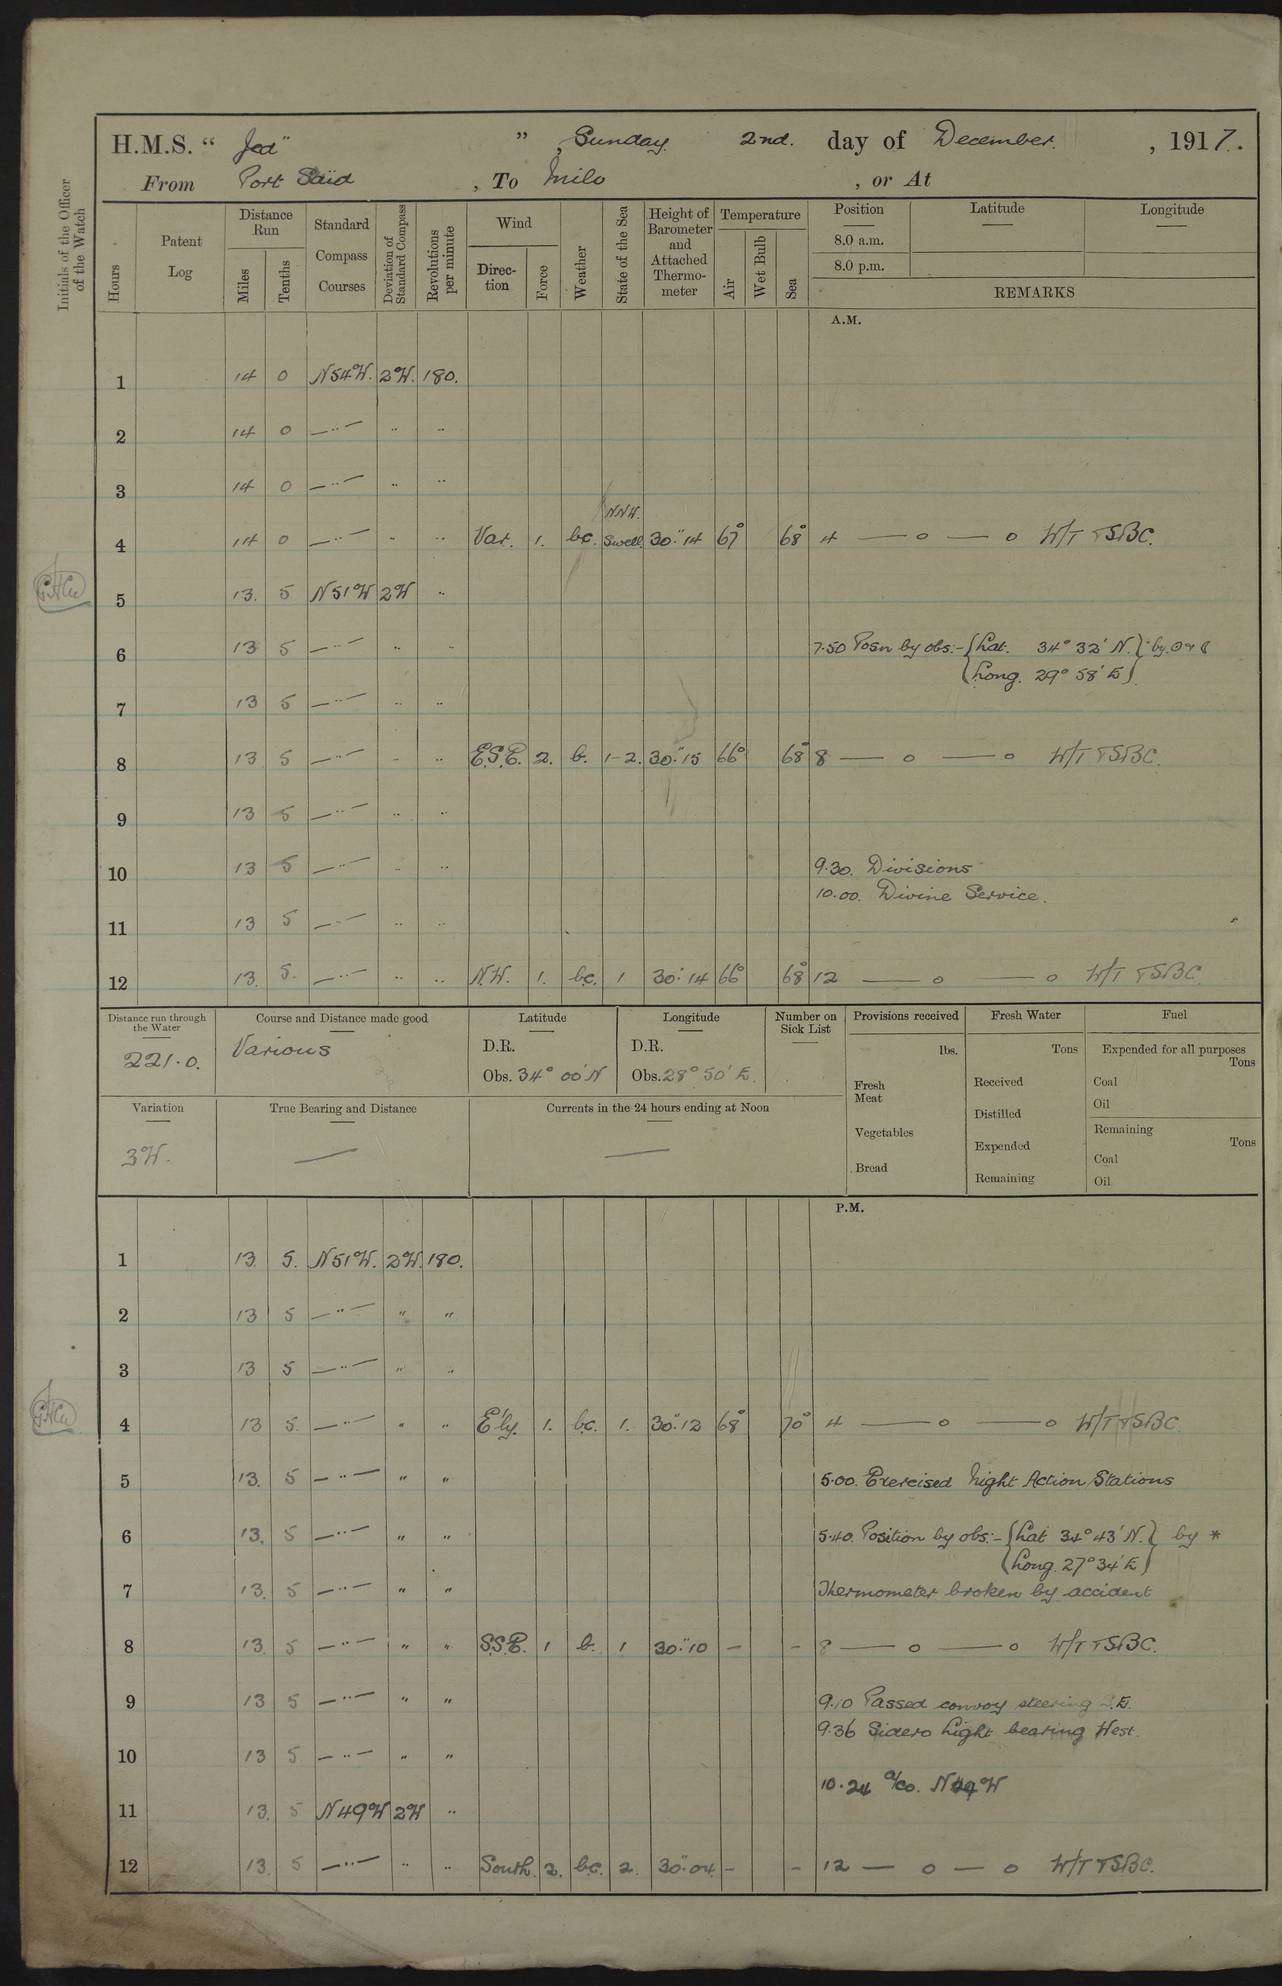 H.M.S. “ Jed” ” , Sunday 2nd. day of December. , 1917.
From Port Said , To Milo , or At
Initials of the Officer of the Watch
Hours
Patent Log
Distance Run
Miles
Tenths
Standard Compass Courses
Deviation of Standard Compass
Revolutions per minute
Wind
Direc-tion
Force
Weather
State of the Sea
Height of Barometer and Attached Thermo-meter
Temperature
Air
Wet Bulb
Sea
Position Latitude Longitude
8.0 a.m.
8.0 p.m.
REMARKS
A.M.
1 14 0 N54°W. 2°W. 180.
2 14 0 —··— ·· ··
3 14 0 —··— ·· ··
N.N.W.
4 14 0 —··— ·· ·· Var. 1. bc. Swell 30."14 67° 68° 4 — o — o W/T TSBC.
5 13. 5 N51°W 2°W ··
6 13 5 —··— ·· ·· 7.50 Posn by obs:- {Lat. 34° 32' N.}
{Long. 29° 58' E}
7 13 5 —··— ·· ··
8 13 5 —··— ·· ·· E.S.E. 2. b. 1-2. 30."15 66° 68° 8 — o — o W/T TSBC.
9 13 5 —··— ·· ··
10 13 5 —··— ·· ·· 9.30. Divisions
10.00. Divine Service.
11 13 5 —··— ·· ··
12 13. 5. —··— ·· ·· N.W. 1. bc. 1 30."14 66° 68° 12 — o — o W/T TSBC.
Distance run through the Water
221.0.
Course and Distance made good
Various
Latitude
D.R.
Obs. 34° 00' N
Longitude
D.R.
Obs. 28° 50' E.
Number on Sick List
Variation
3°W.
True Bearing and Distance
—
Currents in the 24 hours ending at Noon
—
Provisions received
lbs.
Fresh Meat
Vegetables
Bread
Fresh Water
Tons
Received
Distilled
Expended
Remaining
Fuel
Expended for all purposes
Tons
Coal
Oil
Remaining
Tons
Coal
Oil
P.M.
1 13. 5. N51°W. 2°W. 180.
2 13 5 —··— " "
3 13 5 —··— " "
4 13 5. —··— " " E'ly. 1. bc. 1. 30."12 68° 70° 4 — o — o W/T TSBC.
5 13. 5 —··— " " 5.00. Exercised Night Action Stations
6 13. 5 —··— " " 5.40. Position by obs:- {Lat 34° 43' N.} by *
{Long. 27° 34' E}
7 13. 5 —··— " " Thermometer broken by accident
8 13. 5 —··— " " S.S.E. 1 b. 1 30."10 – – 8 — o — o W/T TSBC.
9 13 5 —··— " " 9.10 Passed convoy steering
9.36 Sidero Light bearing West.
10 13 5 —··— " "
10.24 a/co. N49°W
11 13. 5 N49°W 2°W ··
12 13. 5 —··— ·· ·· South. 2. bc. 2. 30."04 – – 12 — o — o W/T TSBC.